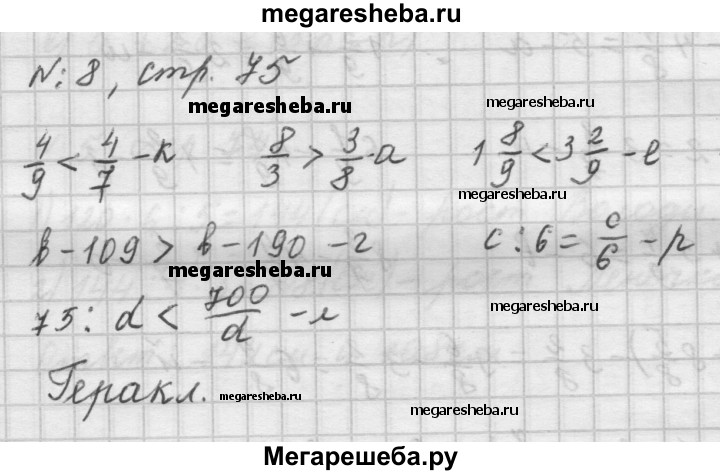 megaresheba.ru
№: 8, стр. 75
megaresheba.ru
megaresheba.ru
4/9 < 4/7 - к 8/3 > 3/8 - а 1 8/9 < 3 2/9 - е
megaresheba.ru
megaresheba.ru
b - 109 > b - 190 - г c : 6 = c/6 - р
megaresheba.ru
megaresheba.ru
75 : d < 700/d - л
Геракл.
megaresheba.ru
megaresheba.ru
Мегарешеба.ру